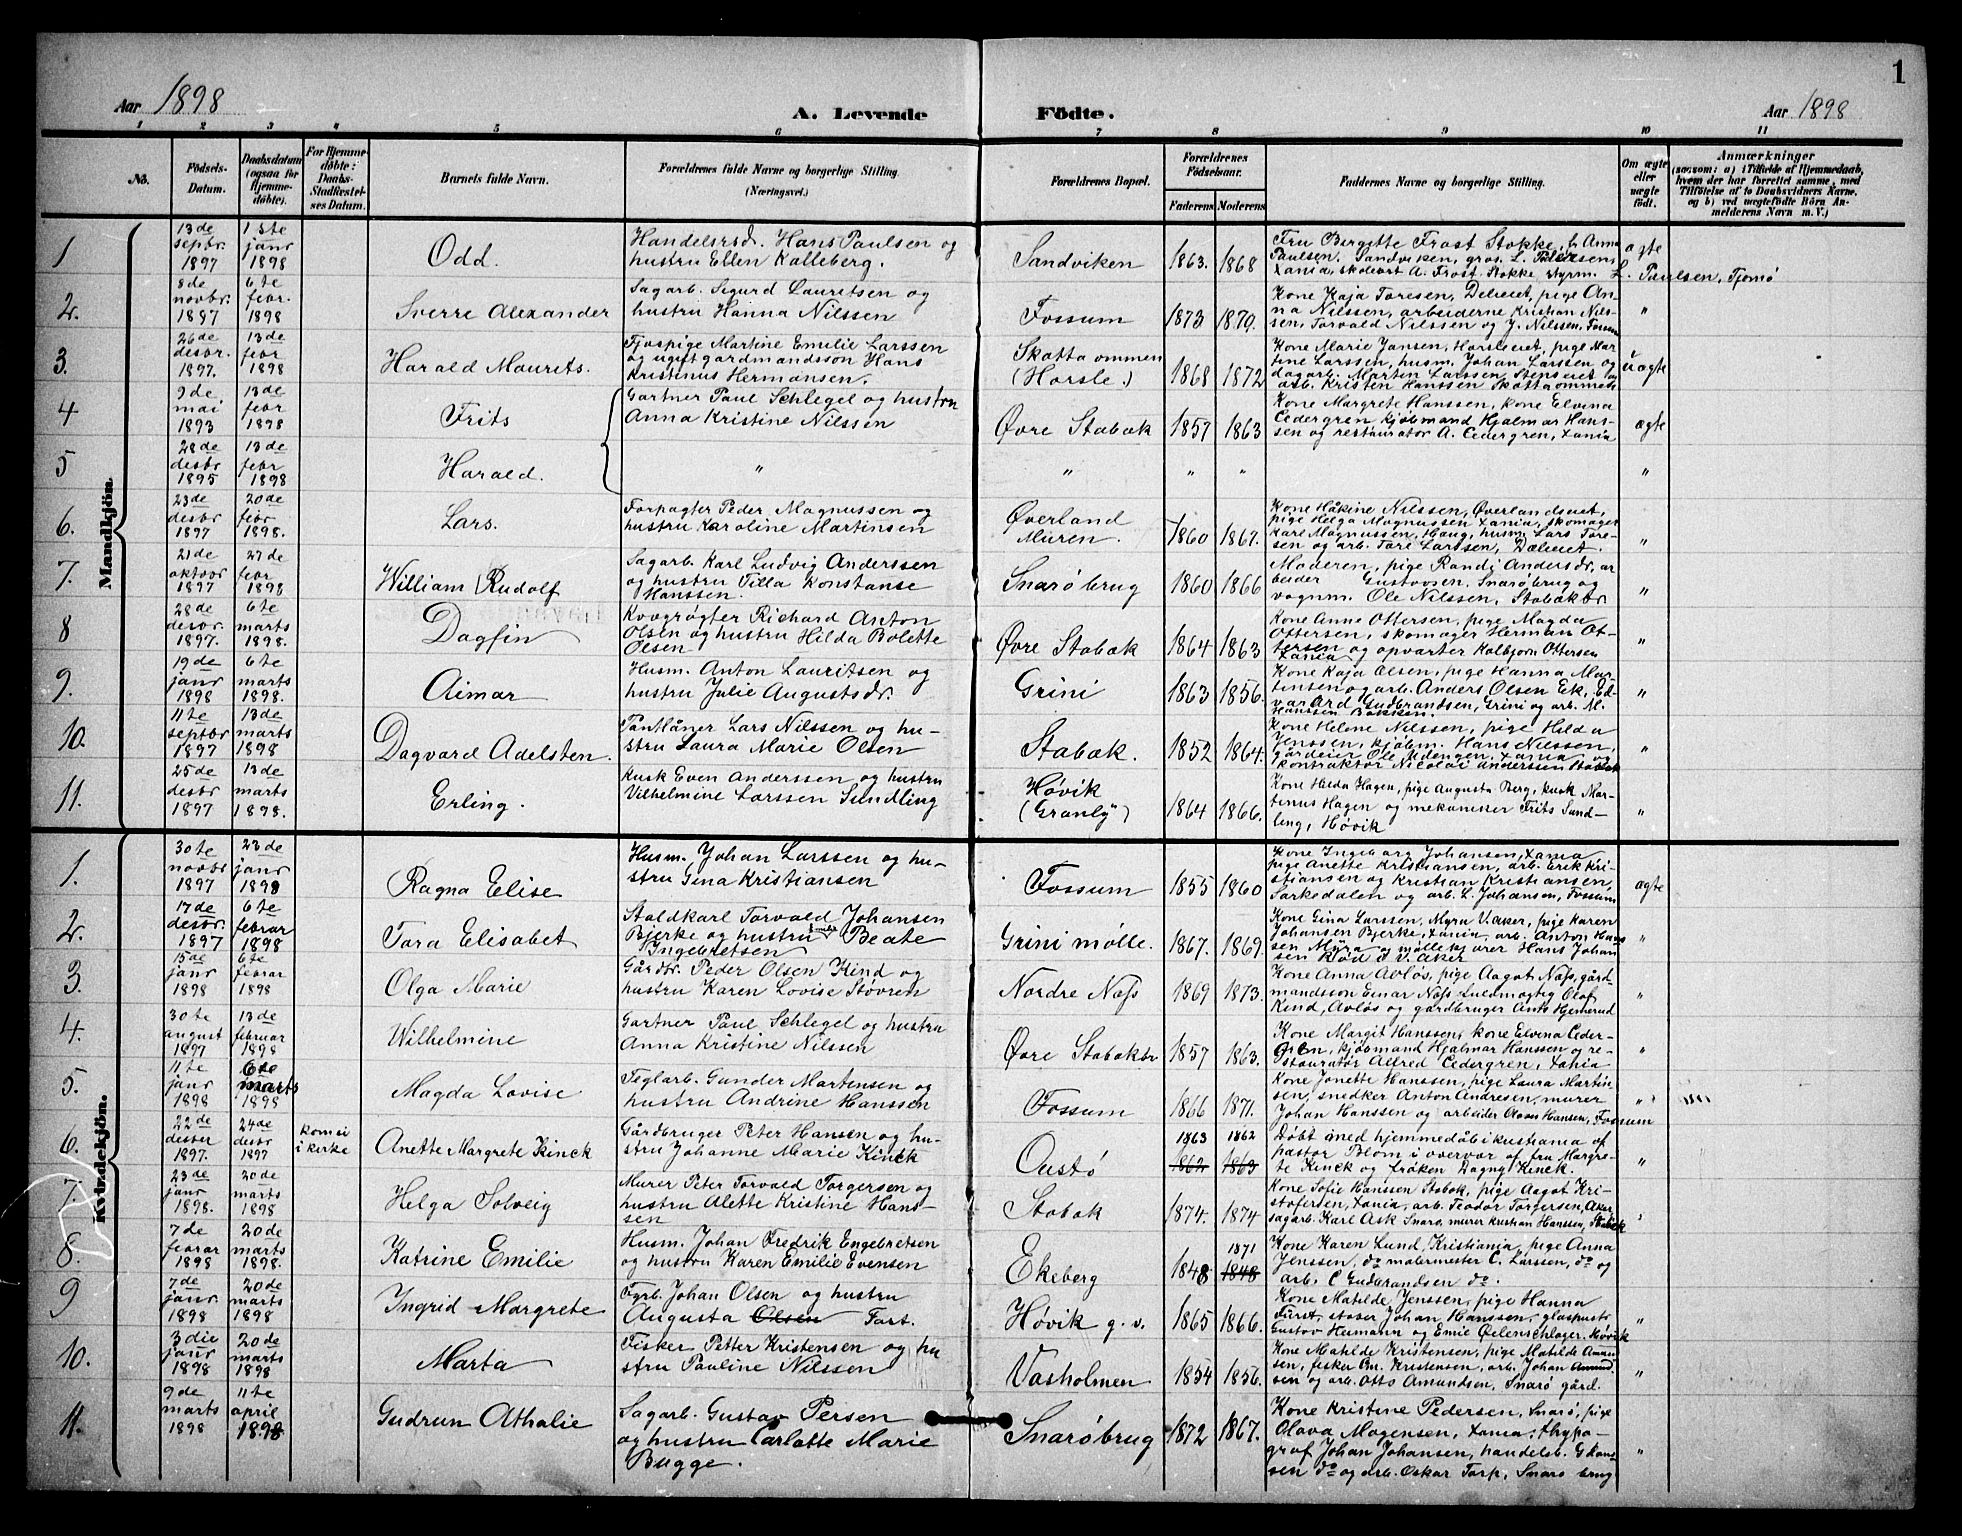 1
Aar 1898
A. Levende
Födte.
Aar 1898
1 2 3 4 5 6 7 8 9 10 11
No.
Födsels-Datum.
Daabsdatum (ogsaa for Hjemmedöbte).
For Hjemmedöbte: Daabs-Stadfæstelses Datum.
Barnets fulde Navn.
Forældrenes fulde Navne og borgerlige Stilling. (Næringsvei.)
Forældrenes Bopæl.
Forældrenes Födselsaar.
Faderens Moderens
Faddernes Navne og borgerlige Stilling.
Om ægte eller uægte födt.
Anmærkninger
(saasom: a) i Tilfælde af Hjemmedaab, hvem der har forrettet samme, med Tilföielse af to Daabsvidners Navne, og b) ved uægtefödte Börn Anmelderens Navn m. V.)
Mandkjön.
1 13de septbr. 1897 1ste janr 1898 Odd. Handelsrsd. Hans Paulsen og hustru Ellen Kalleberg. Sandviken 1863. 1868 Fru Birgitte Frost Stokke, fr Anna Paulsen, Sandviken, gros. L. Paulsen, Xania, skolebest A. Frost Stokke, styrm. L. Paulsen, Tjømø ægte
2. 8de novbr. 1897 6te febr. 1898 Sverre Alexander Sagarb. Sigurd Lauritsen og hustru Hanna Nilssen Fossum 1873 1870. Kone Kaja Toresen, Dælieiet, pige Anna Nilssen, arbeiderne Kristian Nilssen, Torvald Nilssen og J. Nilssen, Fossum "
3. 26de desbr. 1897. 13de febr 1898 Harald Maurits. Tjospige Martine Emilie Larssen og ugift gårdmandssøn Hans Kristinus Hermansen. Skotta ommen (Horsle.) 1868 1872 Kone Marie Jansen, Horsleeiet, pige Martine Larssen, husm. Johan Larssen og dagarb. Marten Larssen Stenseiet og arb. Kristen Hanssen Skotta ommen uægte
4 9de mai 1893 13de febr 1898 Frits Gartner Paul Schlegel og hustru Anna Kristine Nilssen Øvre Stabæk 1857 1863 Kone Margrete Hanssen, kone Elvina Cedergren Kjøbmand Hjalmar Hanssen og restauratør A. Cedergren, Xania ægte
5 28de desbr 1895 13de febr 1898 Harald. " " " " "
6. 23de desbr 1897 20de febr 1898. Lars. Forpagter Peder Magnussen og hustru Karoline Martinsen Øverland Muren. 1860 1867. Kone Håkine Nilssen, Øverlandseiet, pige Helga Magnussen Xania, skomager Karl Magnussen, Haug, husm. Lars Toresen og arb. Tore Larssen, Dæleiet. "
7. 21de oktobr 1897 27de febr 1898 William Rudolf Sagarb. Karl Ludvig Anderssen og hustru Tilla Konstanse Hanssen. Snarøbrug 1860 1866 Moderen, pige Randi Andersdr, arbeider Gustavsen, Snarøbrug og vognm. Ole Nilssen, Stabækbr "
8 28de desbr 1897. 6te marts 1898. Dagfin Kvægrøgter Richard Anton Olsen og hustru Hilda Bolette Olsen Øvre Stabæk 1864 1863 Kone Anne Ottersen, pige Magda Ottersen, skomager Herman Ottersen og opvarter Kolbjørn Ottersen Xania "
9. 19de janr 1898 6te marts 1898. Aimar Husm. Anton Lauritsen og hustru Julie Augustsdr. Grini 1863 1856. Kone Kaja Olsen, pige Hanna Martinsen og arb. Anders Olsen Ek, Edvard Gudbrandsen, Grini og arb. M. Hanssen Bakken. "
10. 11te septbr 1897 13de marts 1898 Dagvard Adelsten. Pantlåner Lars Nilssen og hustru Laura Marie Olsen Stabæk. 1852 1864. Kone Helene Nilssen, pige Hilda Jenssen, kjøbm. Hans Nilssen, gårdeier Ole Udengen, Xania og kontraktør Nicolai Anderssen Stabæk "
11. 25de desbr 1897 13de marts 1898. Erling. Kusk Even Anderssen og hustru Vilhelmine Larssen Sundling Høvik (Granly) 1864 1866. Kone Hilda Hagen, pige Augusta Berg, kusk Martinus Hagen og mekaniker Frits Sundling, Høvik "
Kvindekjön.
1. 30te novbr 1897 23de janr 1898 Ragna Elise Husm. Johan Larssen og hustru Gina Kristiansen Fossum 1855 1860 Kone Ingeborg Johansen, Xania pige Anette Kristiansen, arb. Erik Kristiansen og Kristian Kristiansen, Sørkedalen og arb. L. Johansen, Fossum ægte
2. 17de desbr. 1897 6te februar 1898 Tora Elisabet Staldkarl Torvald Johansen Bjerke og hustru Beate Ingebretsen Grini mølle. 1867. 1869. Kone Gina Larssen, Myra V. Aker, pige Karen Johansen Bjerke, Xania, arb. Anton Hanssen Myra og møllekjører Hans Johansen V. Aker "
3. 15de janr 1898 6te februar 1898 Olga Marie Gårdbr. Peder Olsen Kind og hustru Karen Lovise Støvren Nordre Næs 1869 1873. Kone Anna Avløs, pige Aagot Næs, gårdmandssøn Einar Næs fuldmægtig Olaf Kind, Avløs og gårdbruger Ants Hjemerud "
4. 30te august 1897 13de februar 1898 Wilhelmine Gartner Paul Schlegel og hustru Anna Kristine Nilssen Øvre Stabækbr 1857 1863. Kone Margit Hanssen, kone Elvina Cedergren, kjøbmand Hjalmar Hanssen og restauratør Alfred Cedergren, Xania "
5. 11te janr 1898 6te marts 1898 Magda Lovise Teglarb. Gunder Martensen og hustru Andrine Hanssen Fossum 1866 1871. Kone Jonette Hanssen, pige Laura Martinsen, snedker Anton Andresen, murer Johan Hanssen og arbeider Olavus Hansen, Fossum "
6. 22de desber 1897. 24de desbr 1897 kom ei i kirke Anette Margrete Kinck Gårdbruger Peter Hansen og hustru Johanne Marie Kinck Oustø 1863 1862 1862 1863 Døbt med hjemmedåb i kristiania af pastor Blom i overvær af fru Margrete Kinck og frøken Dagny Kinck. "
7. 23de janr 1898. 20de marts 1898 Helga Solveig Murer Peter Torvald Torgersen og hustru Alette Kristine Hanssen Stabæk 1874. 1874 Kone Sofie Hanssen Stabæk, pige Aagot Kristofersen, Xania, arb. Teodor Torgersen, Aker, sagarb. Karl Ask Snarø, murer Kristian Hanssen, Stabæk "
8. 7de februar 1898 20de marts 1898. Katrine Emilie Husm. Johan Fredrik Engebretsen og hustru Karen Emilie Evensen Ekeberg 1848 1871 1848 Kone Karen Lund, Kristiania, pige Anna Jenssen, do malermester C. Larssen, do og arb. C Gudbrandsen do. "
9 7de janr. 1898 20de marts 1898 Ingrid Margrete Fgrb. Johan Olsen og hustru Augusta Olsen Fort. Høvik g. v. 1865 1866. Kone Matilde Jenssen, pige Hanna Fürst, støber Johan Hanssen, glaspuster Gustav Heimann og Emil Øelenschlager. Høvik "
10. 3die janr 1898 20de marts 1898 Marta Fisker Petter Kristensen og hustru Pauline Nilssen Vasholmen 1854 1856. Kone Matilde Kristensen, pige Matilde Amundsen, fisker Chr. Kristensen, arb. Johan Amundsen og arb. Otto Amundsen, Snarø gård. "
11. 9de marts 1898 11te april 1898 Gudrun Athalie Sagarb. Gustav Persen og hustru Carlotte Marie Bugge. Snarøbrug 1872 1867. Kone Kristine Pedersen, Snarø, pige Olava Mogensen, Xania, thypograf Johan Johansen, handelsb. G. Hanssen do og arb. Oskar Torp, Snarø brug "